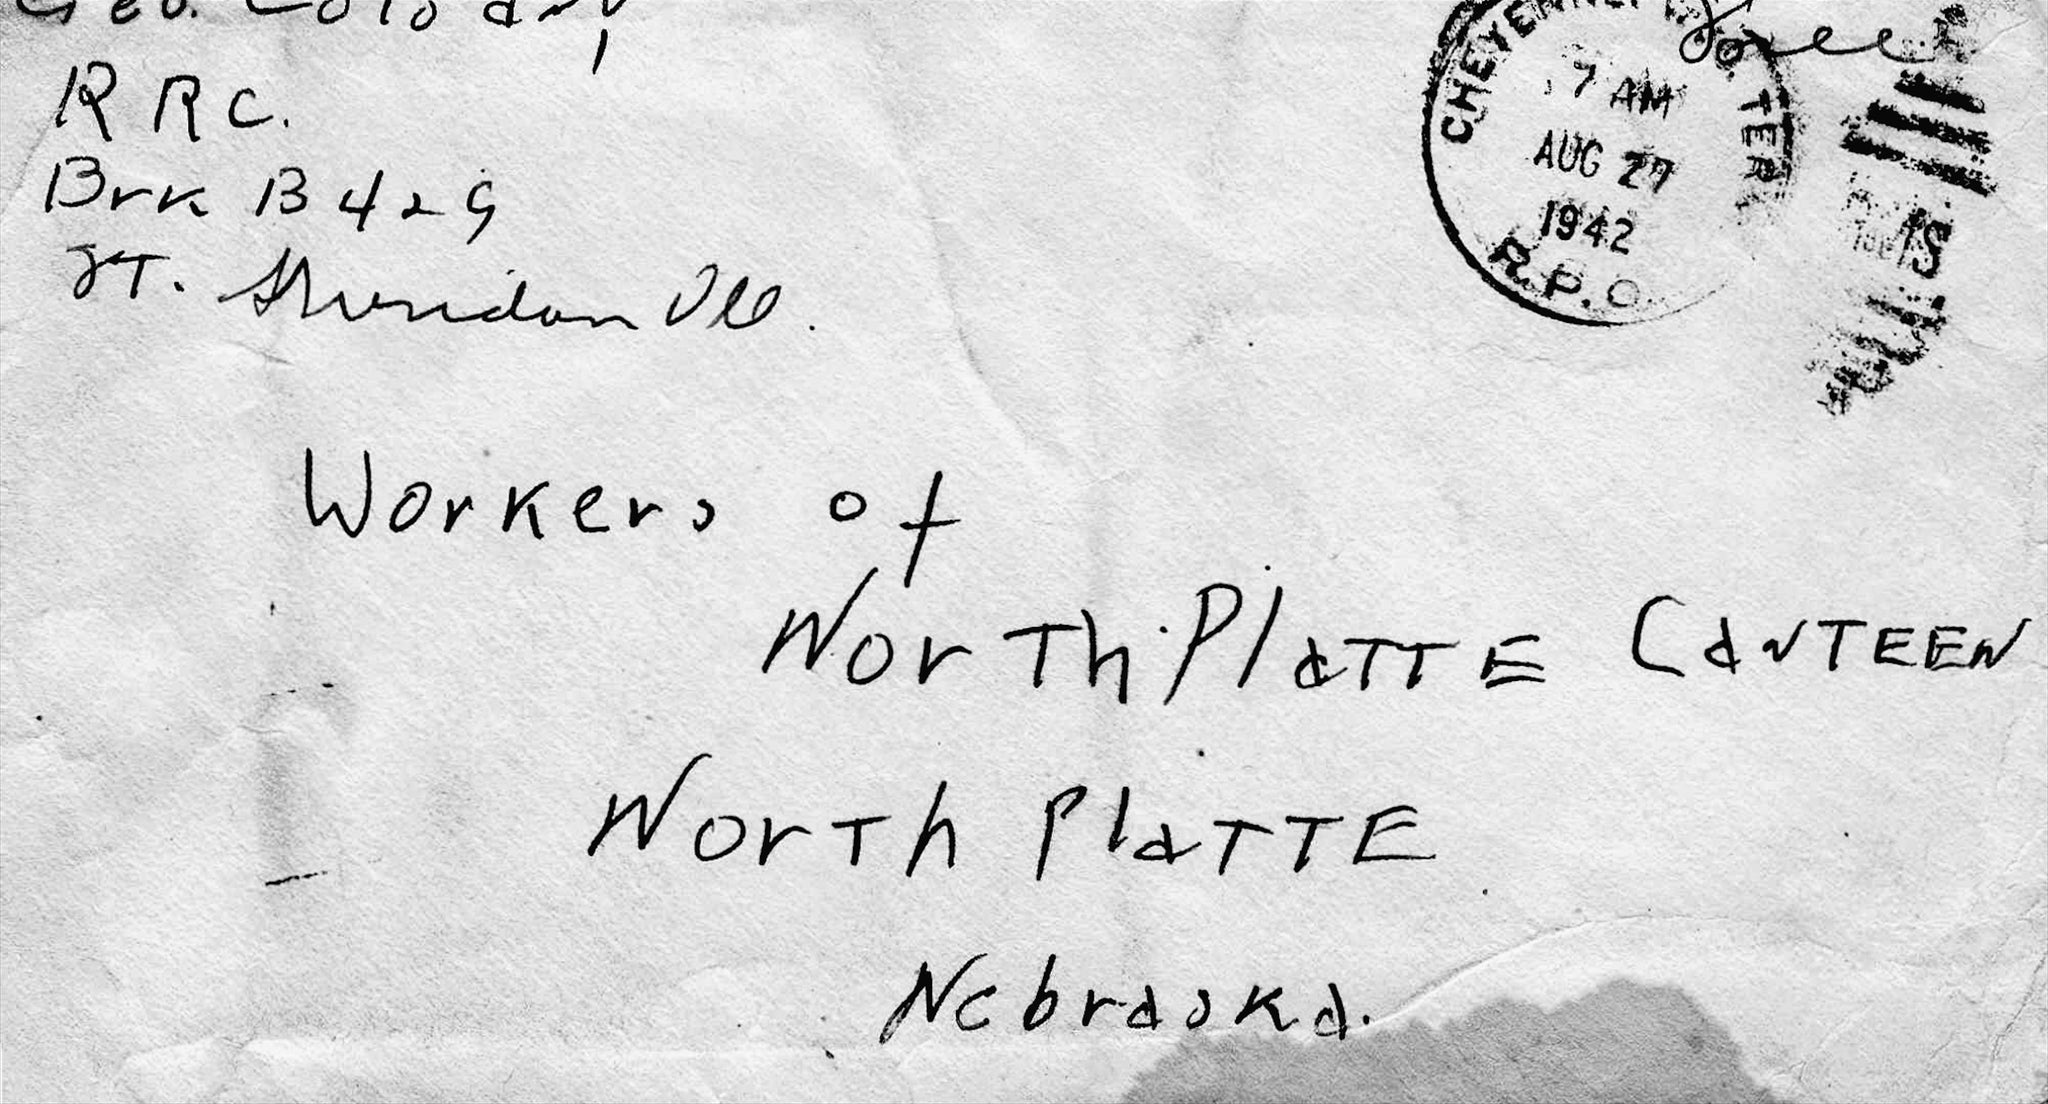 Geo.
R R C.
Brk B 429
FT. Sheridan Ill.
Free
CHEYENNE
TER
7 AM
AUG 27
1942
R.P.O.
Workers of
North Platte Canteen
North Platte
Nebraska.